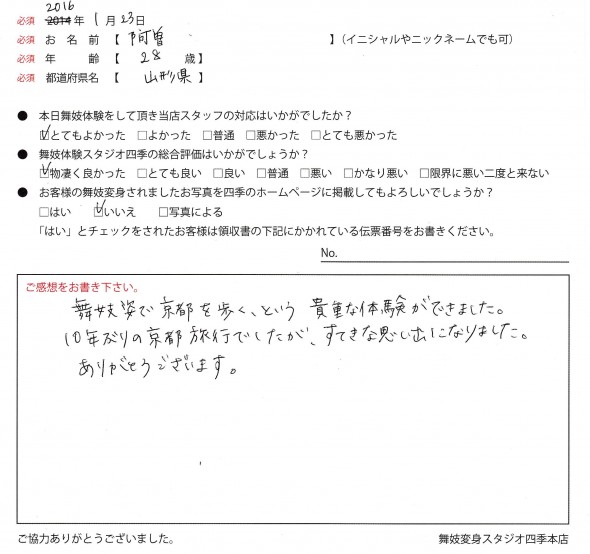 2016
必須 2014 年 1 月 23 日
必須 お 名 前 【 阿曽 】(イニシャルやニックネームでも可)
必須 年 齢 【 28 歳】
必須 都道府県名 【 山形県 】
● 本日舞妓体験をして頂き当店スタッフの対応はいかがでしたか？
☑とてもよかった □よかった □普通 □悪かった □とても悪かった
● 舞妓体験スタジオ四季の総合評価はいかがでしょうか？
☑物凄く良かった □とても良い □良い □普通 □悪い □かなり悪い □限界に悪い二度と来ない
● お客様の舞妓変身されましたお写真を四季のホームページに掲載してもよろしいでしょうか？
□はい ☑いいえ □写真による
「はい」とチェックをされたお客様は領収書の下記にかかれている伝票番号をお書きください。
No.
ご感想をお書き下さい。
舞妓姿で京都を歩く、という 貴重な体験ができました。
10年ぶりの京都旅行でしたが、すてきな思い出になりました。
ありがとうございます。
ご協力ありがとうございました。
舞妓変身スタジオ四季本店